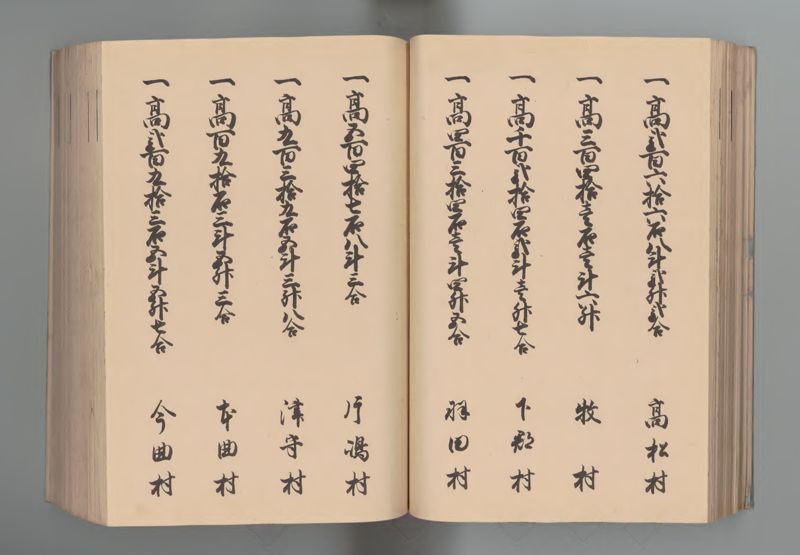 一高弐百六拾六石八斗弐升弐合 高松村
一高三百四拾壱石壱斗六升 牧村
一高千百弐拾四石弐斗壱升七合 下郡村
一高四百三拾四石壱斗四升五合 羽田村
一高五百四拾七石八斗三合 片嶋村
一高九百三拾九石五斗三升八合 津守村
一高百九拾石三斗五升三合 本曲村
一高弐百九拾三石五斗五升七合 今曲村